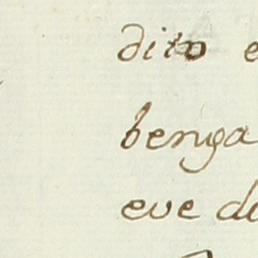 dito e
benga
eve do